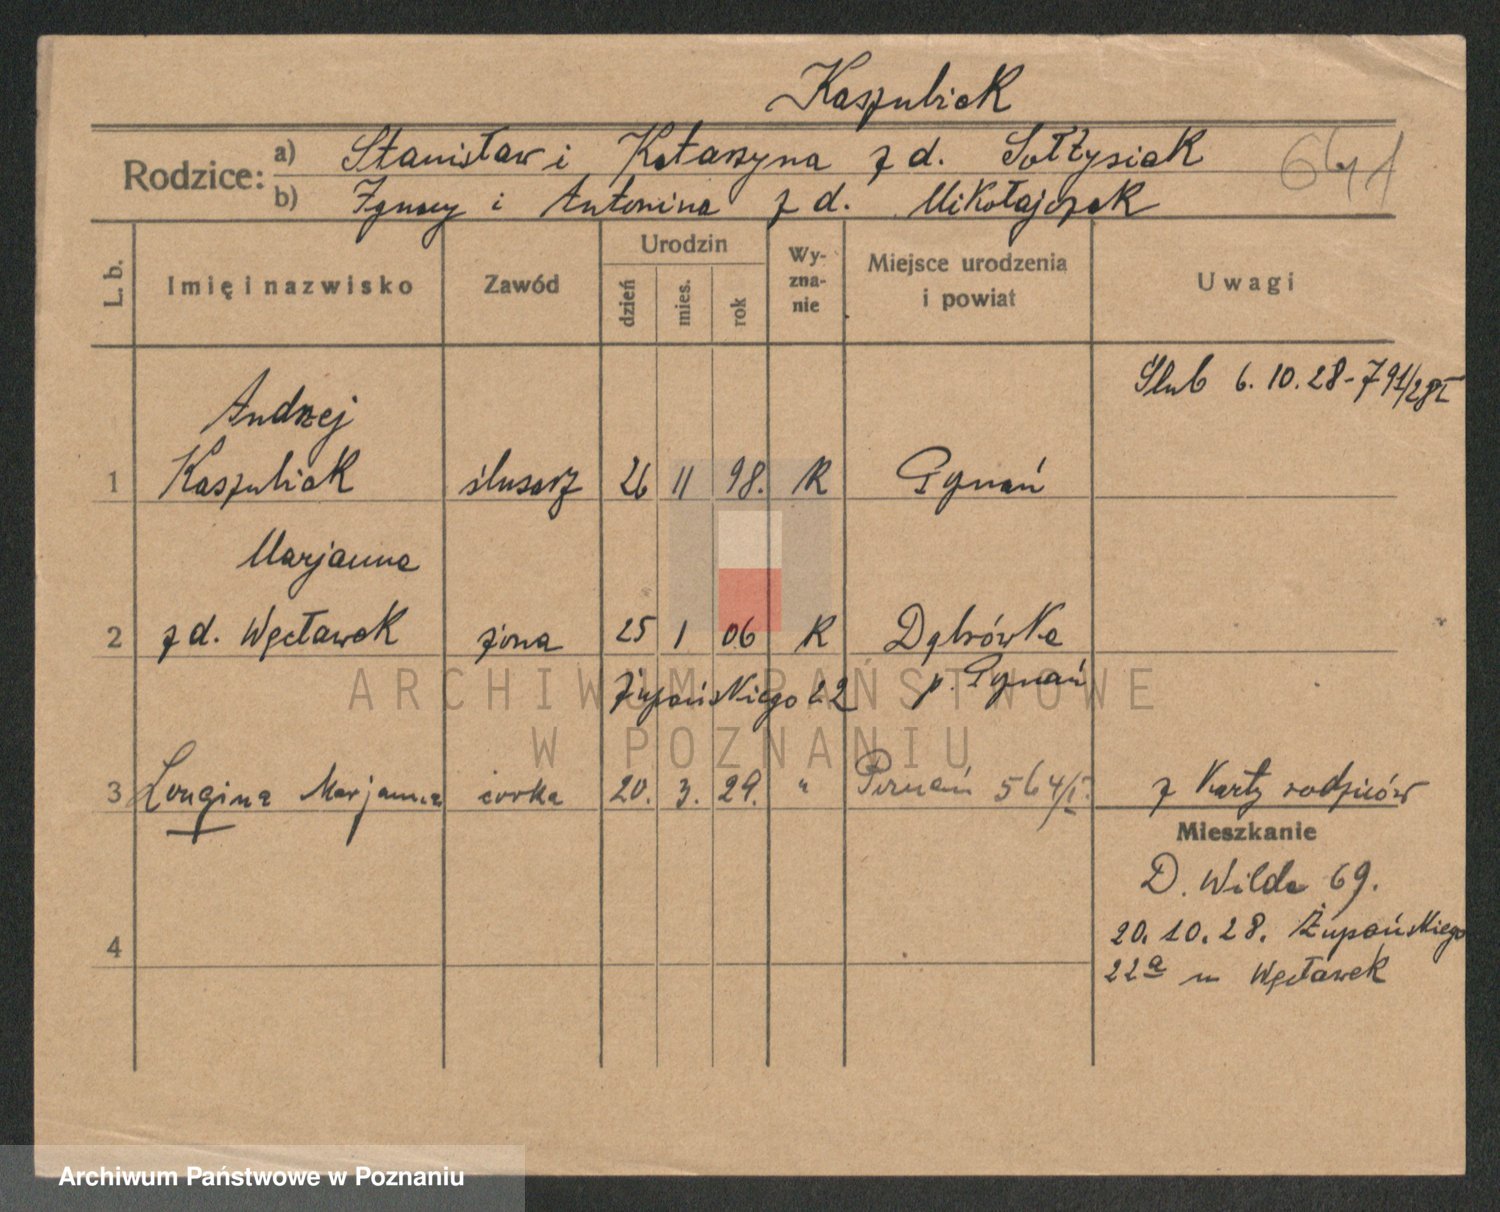 Kaszubiak
Rodzice:
a) Stanisław i Katarzyna z d. Sołtysiak
b) Ignacy i Antonina z d. Mikołajczak
L. b.
Imię i nazwisko
Zawód
Urodzin
dzień
mies.
rok
Wy-
zna-
nie
Miejsce urodzenia
i powiat
Uwagi
Ślub 6. 10. 28 - 791/28 I
Andrzej
1 Kaszubiak ślusarz 26 11 98. K Poznań
Marjanna
2 z d. Węcławek żona 25 1 06 K Dąbrówka
p. Poznań
Żupańskiego 22
3 Longina Marjanna córka 20. 3. 29. " Poznań 564/I. z Karty rodziców
Mieszkanie
D. Wilda 69.
20. 10. 28. Żupańskiego
22a m Węcławek
4
ARCHIWUM PAŃSTWOWE
W POZNANIU
Archiwum Państwowe w Poznaniu